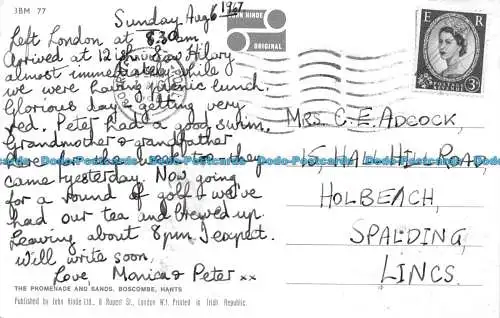 JBM 77
Sunday Aug 6 1967
Left London at 8.30am
Arrived at 12ish. Saw Hilary
almost immediately while
we were having picnic lunch.
Glorious day & getting very
red. Peter had a good swim.
Grandmother & grandfather
here for the week too. they
came yesterday. Now going
for a round of golf. we've
had our tea and brewed up.
Leaving about 8pm I expect.
Will write soon,
Love, Monica & Peter xx
JOHN HINDE
ORIGINAL
E R
POSTAGE REVENUE
3D
MRS C. E. ADCOCK,
15, HALL HILL ROAD,
HOLBEACH,
SPALDING,
LINCS.
Dodo-Postcards Dodo-Postcards Dodo-Postcards Dodo-Postcards
THE PROMENADE AND SANDS, BOSCOMBE, HANTS
Published by John Hinde Ltd., 8 Rupert St., London W.1. Printed in Irish Republic.